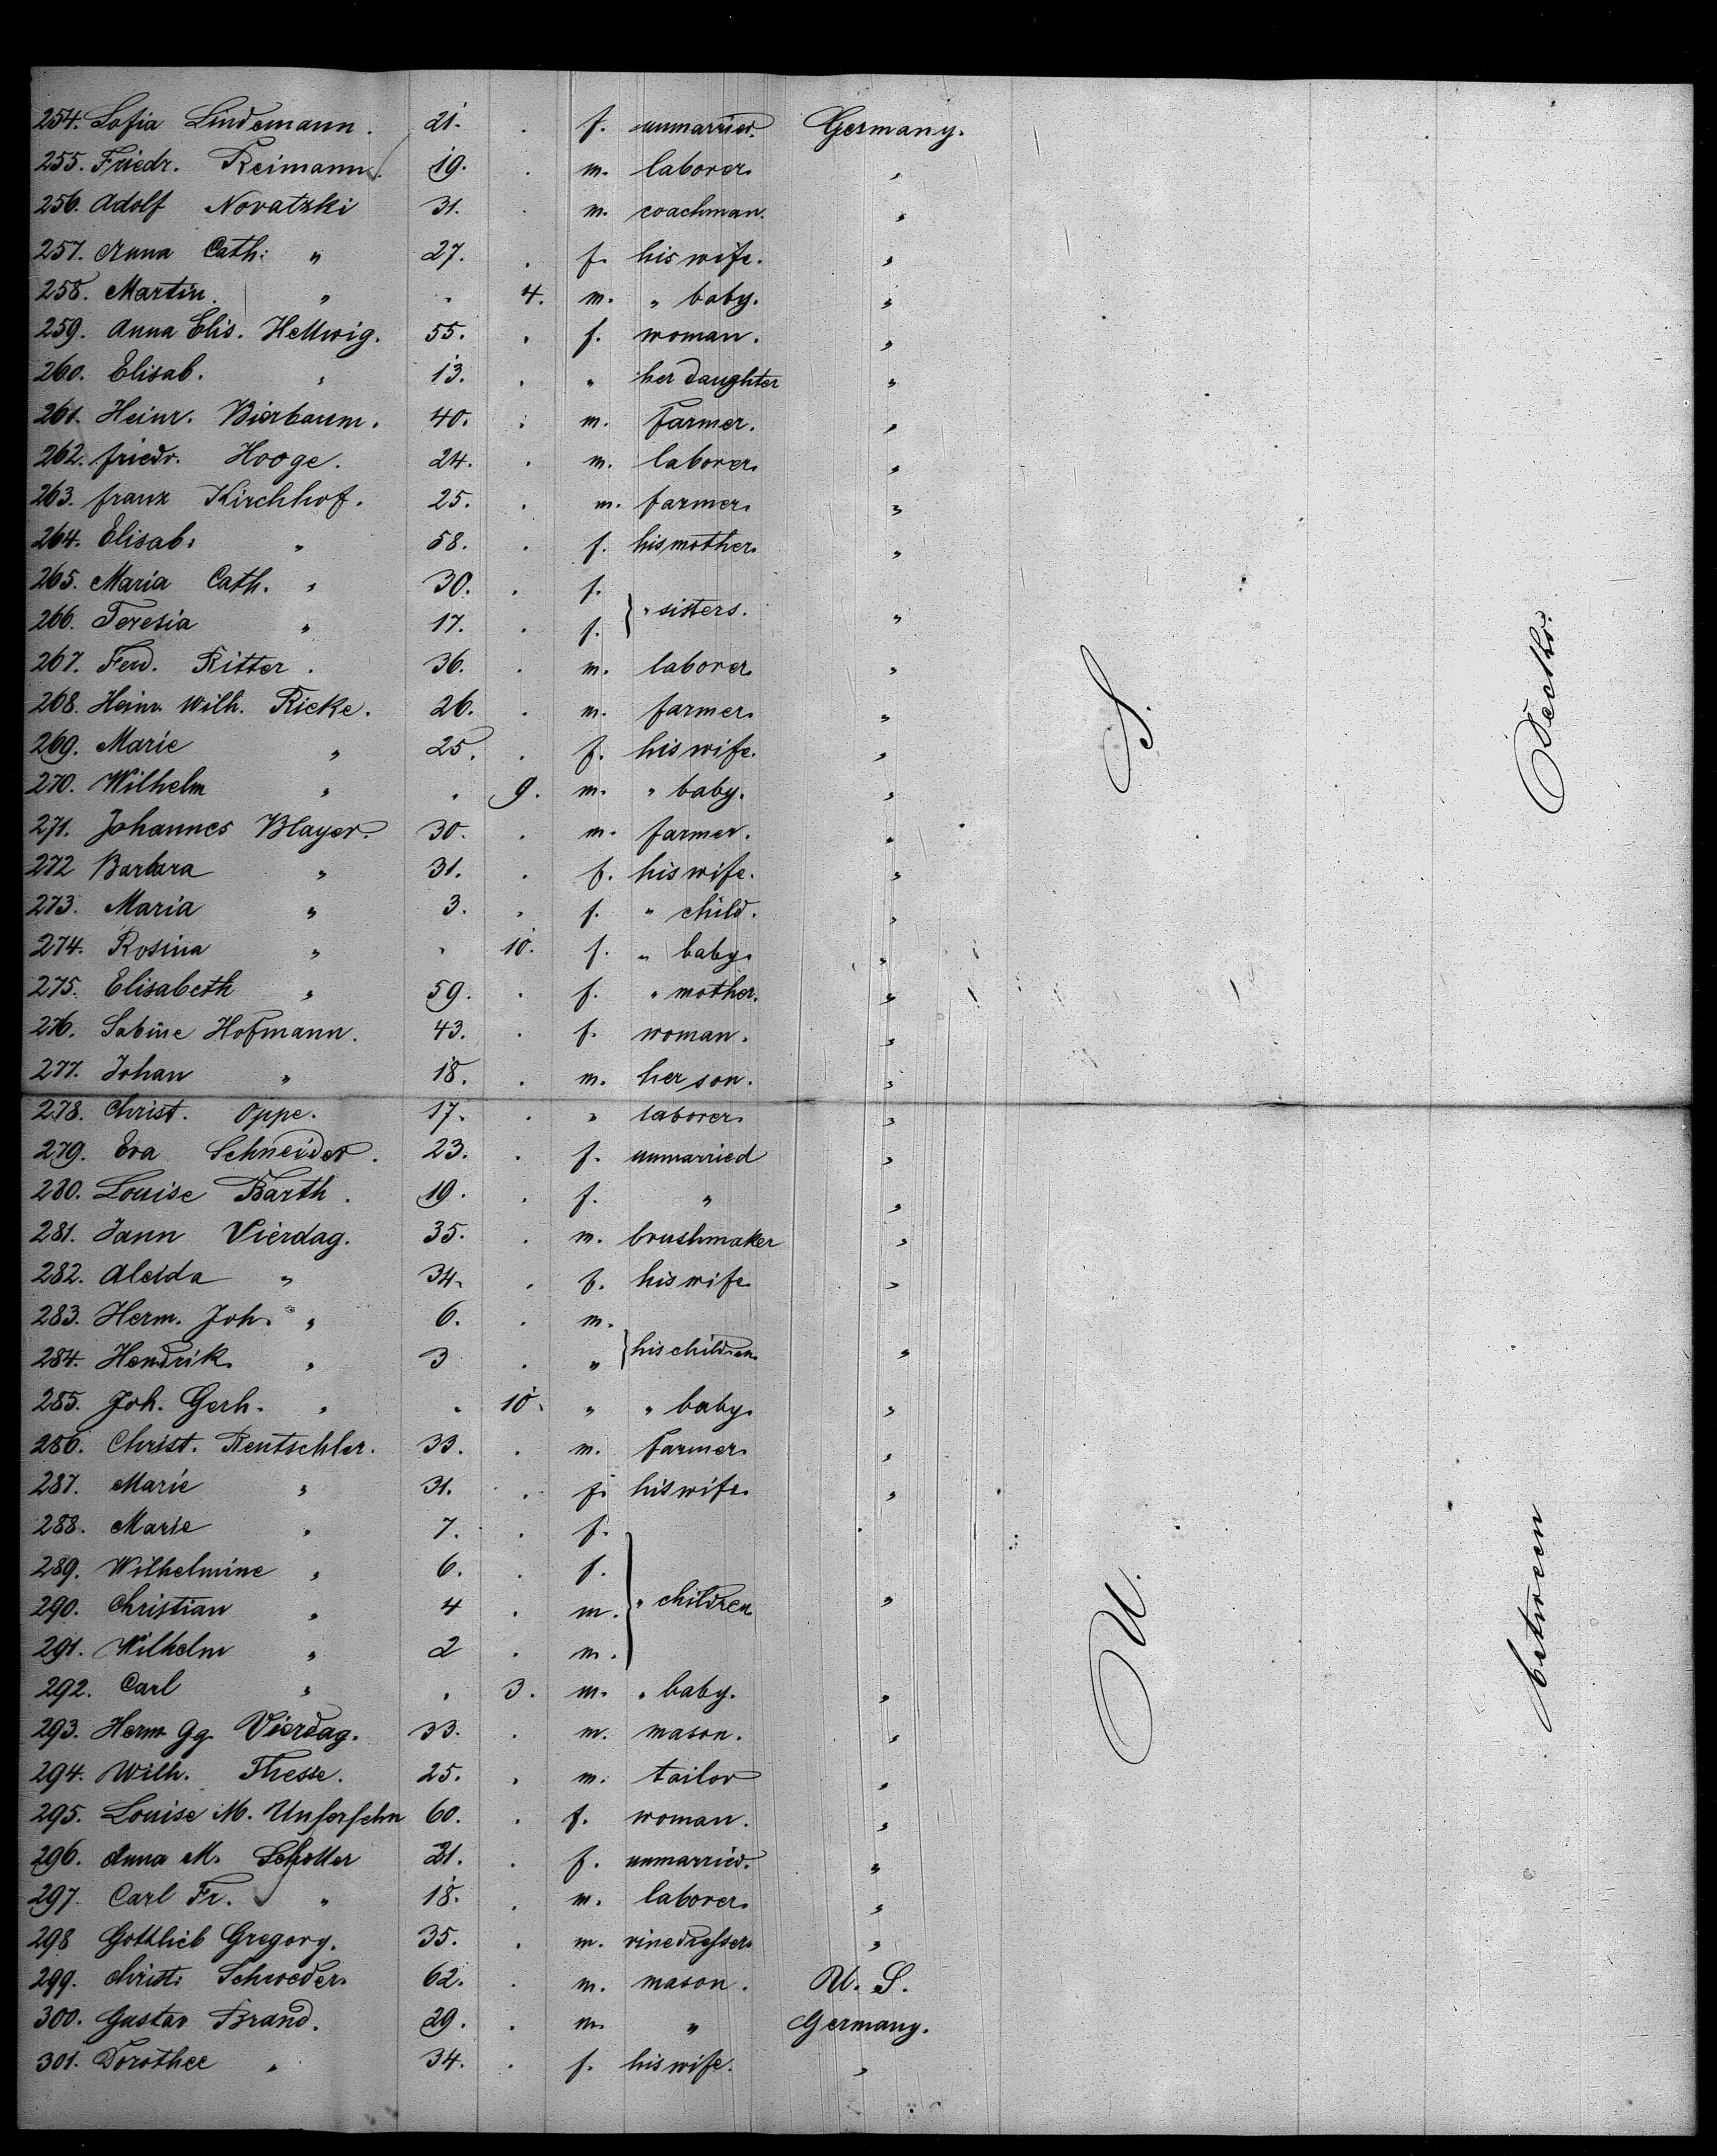 254. Sofia Lindemann. 21. . f. unmarried. Germany.
255. Friedr. Reimann. 19. . m. laborer. "
256. Adolf Novatzki 31. . m. coachman. "
257. Anna Cath: " 27. . f. his wife. "
258. Martin. " . 4. m. " baby. "
259. Anna Elis. Hellwig. 55. . f. woman. "
260. Elisab. " 13. . " her daughter "
261. Heinr. Bierbaum. 40. . m. farmer. "
262. Friedr. Hooge. 24. . m. laborer. "
263. Franz Kirchhof. 25. . m. farmer. "
264. Elisab. " 58. . f. his mother. "
265. Maria Cath. " 30. . f.
" sisters.
266. Teresia " 17. . f. "
267. Ferd. Ritter. 36. . m. laborer. "
268. Heinr. Wilh. Ricke. 26. . m. farmer. "
269. Marie " 25. . f. his wife. "
270. Wilhelm " . 9. m. " baby. "
271. Johannes Mayer. 30. . m. farmer. "
272 Barbara " 31. . f. his wife. "
273. Maria " 3. . f. " child. "
274. Rosina " . 10. f. " baby. "
275. Elisabeth " 59. . f. " mother. "
276. Sabine Hofmann. 43. . f. woman. "
277. Johan " 18. . m. her son. "
278. Christ. Oppe. 17. . " laborer. "
279. Eva Schneider. 23. . f. unmarried "
280. Louise Barth. 19. . f. " "
281. Jann Vierdag. 35. . m. brushmaker "
282. Aleida " 34. . f. his wife "
283. Herm. Joh. " 6. . m.
his children
284. Hendrik. " 3 . " "
285. Joh. Gerh. " . 10. " " baby. "
286. Christ. Rentschler. 33. . m. farmer. "
287. Marie " 31. . f. his wife. "
288. Marie " 7. . f.
289. Wilhelmine " 6. . f.
290. Christian " 4 . m. " children "
291. Wilhelm " 2 . m.
292. Carl " . 3. m. " baby. "
293. Herm. Gg. Vierdag. 33. . m. mason. "
294. Wilh. Thesse. 25. . m. tailor "
295. Louise M. Unsersehn 60. . f. woman. "
296. Anna M. Schotter 21. . f. unmarried. "
297. Carl Fr. " 18. . m. laborer. "
298 Gottlieb Gregory. 35. . m. vinedresser. "
299. Christ. Schweder. 62. . m. mason. U. S.
300. Gustav Brand. 29. . m. " Germany.
301. Dorothee " 34. . f. his wife. "
U. S.
between Decks.